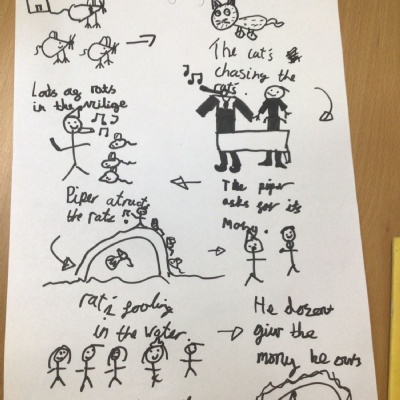 Lods og rats
in the vilige
The cat's
chasing the
rats.
Piper atructs
the rats
The piper
asks for its
Mony.
rat's fooling
in the water.
He dosent
giv the
mony he ows